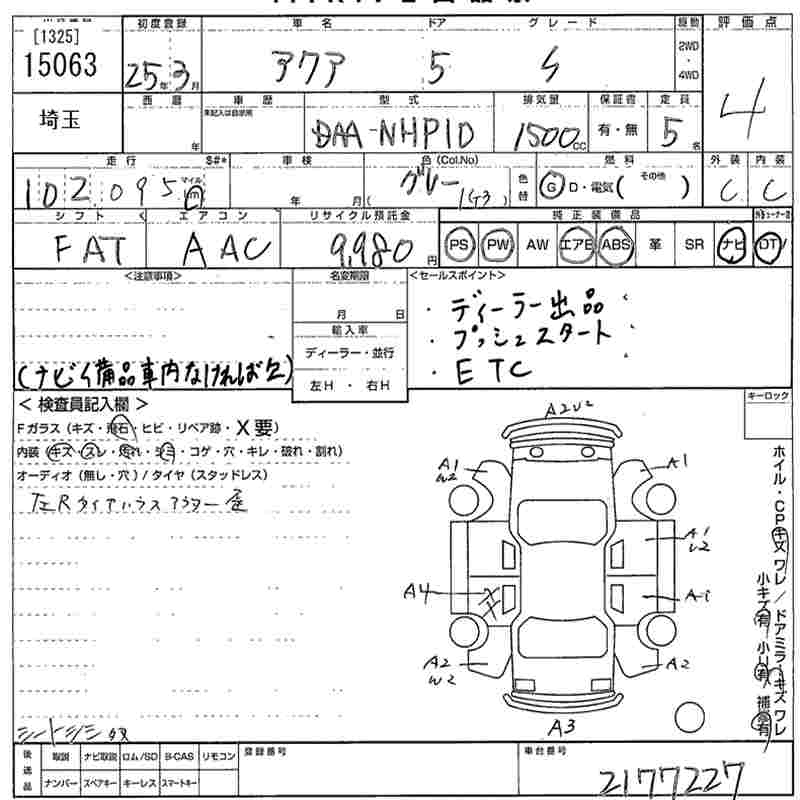 [1325]
初度登録 車名 ドア グレード 駆動 評価点
15063 25年3月 アクア 5 S 2WD・4WD 4
西暦 車歴 型式 排気量 保証書 定員
埼玉 年 未記入は自家用 DAA-NHP10 1500cc 有・無 5名
走行 S#* 車検 色(Col.No) 燃料 外装 内装
102,095 マイル km 年 月 グレー (1G3) 色替 G D・電気( その他 ) C C
シフト エアコン リサイクル預託金 純正装備品
FAT AAC 9,980円 PS PW AW エアB ABS 革 SR ナビ DT/
<注意事項> 名変期限 <セールスポイント>
月 日
・ディーラー出品
輸入車
・プッシュスタート
ディーラー・並行
(ナビイ備品車内なければ欠) 左H・右H ・ETC
<検査員記入欄> キーロック
Fガラス(キズ・飛石・ヒビ・リペア跡・X要)
内装(キズ・スレ・汚れ・シミ・コゲ・穴・キレ・破れ・割れ)
オーディオ(無し・穴)/タイヤ(スタッドレス)
A2U2
A1 W2 A1
A1 U2
A4 XX A1
A2 W2 A2
A3
ホイル・CPキズ ワレ/ドアミラーキズ ワレ
小キズ有 小U有 補修有
後送品 取説 ナビ取説 ロム/SD B-CAS リモコン 登録番号 車台番号
ナンバー スペアキー キーレス スマートキー 2177227